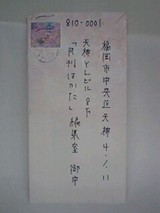 810-0001
福岡市中央区天神4.1.11
天神ビル8F
『月刊はかた』編集室 御中